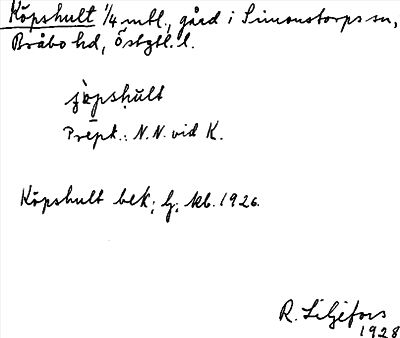 Köpshult 1/4 mtl., gård i Simonstorps sn,
Bråbo hd, Östgtl. l.
Prepk.: N.N. vid K.
Köpshult bek. kb. 1926.
R. Liljefors
1928